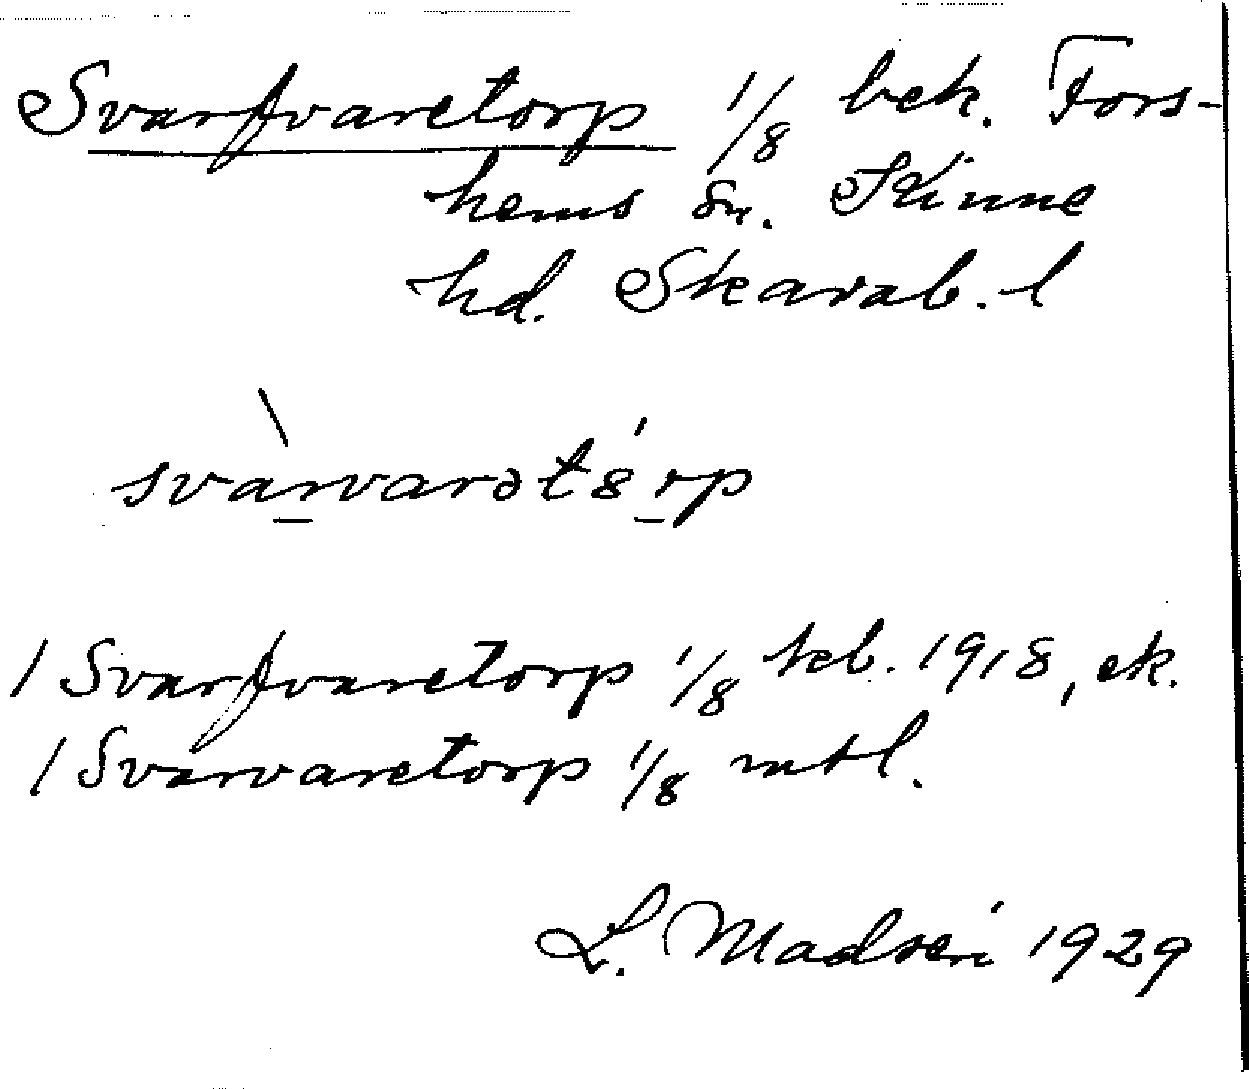 Svarfvaretorp 1/8 bek. Fors-
hems sn. Kinne
hd. Skarab. l
svàrvarətórp
1 Svarfvaretorp 1/8 keb. 1918, ek.
1 Svarvaretorp 1/8 mtl.
L. Madsén 1929